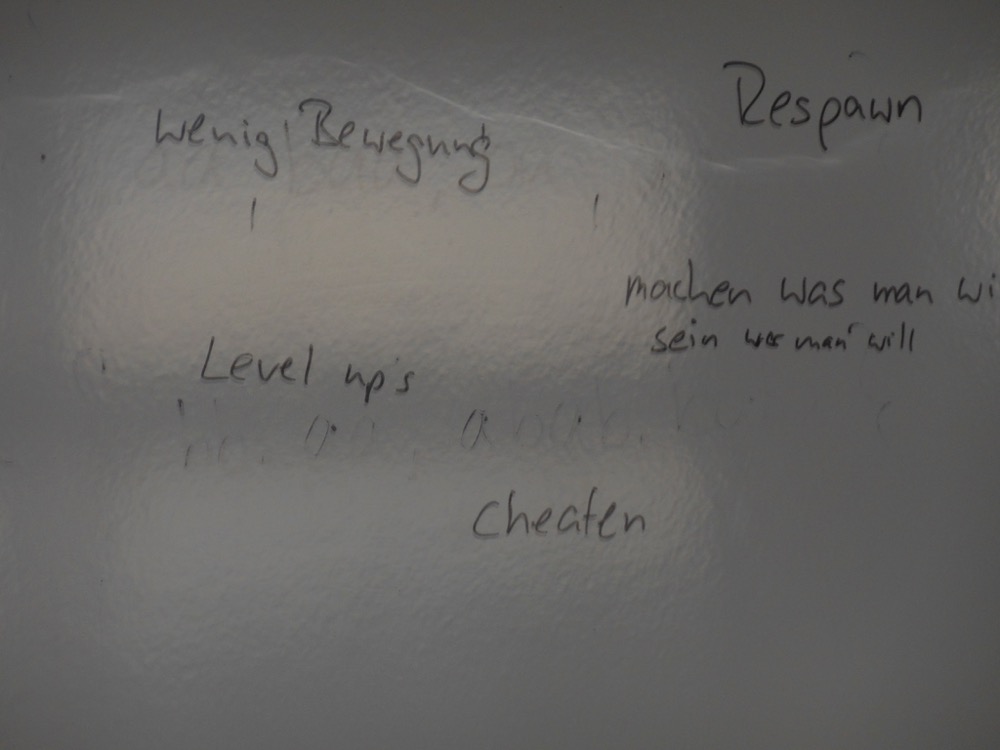 Respawn
wenig Bewegung
machen was man wi
sein wer man will
Level up's
cheaten